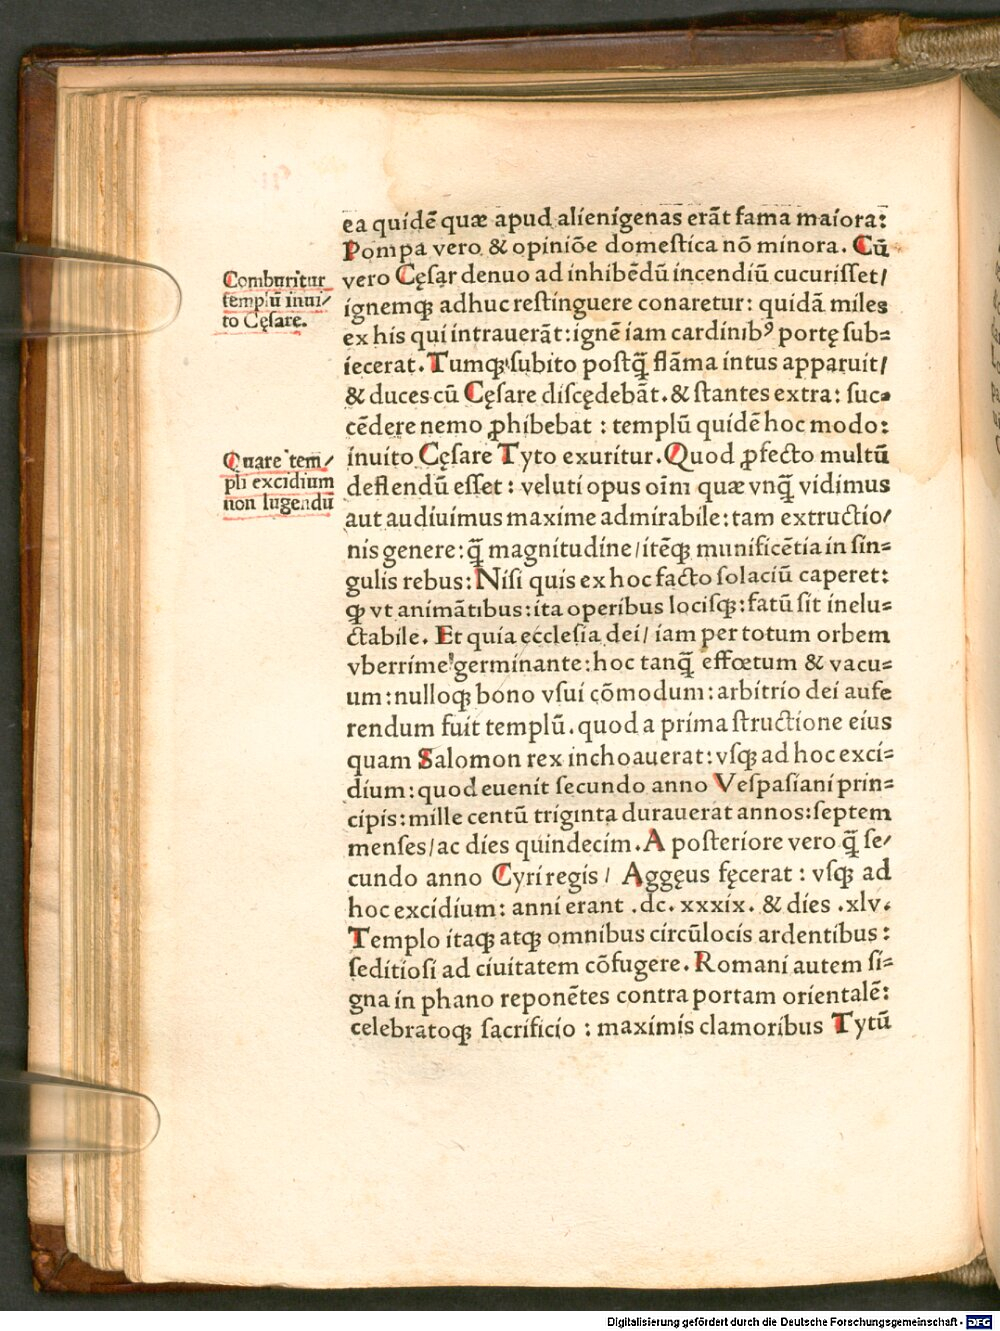 ea quidē quæ apud alienigenas erāt fama maiora:
Pompa vero & opiniōe domestica nō minora. Cū
Comburitur
templū inui/
to Cęsare.
vero Cęſar denuo ad inhibēdū incendiū cucuriſſet/
ignemqꝫ adhuc reſtinguere conaretur: quidā miles
ex his qui intrauerāt: ignē iam cardinibꝰ portę ſub=
iecerat. Tumqꝫ ſubito poſtq̄ flāma intus apparuit/
& duces cū Cęſare diſcędebāt. & ſtantes extra: ſuc=
cēdere nemo ꝓhibebat : templū quidē hoc modo:
Quare tem/
pli excidium
non lugendū
inuito Cęſare Tyto exuritur. Quod ꝓfecto multū
deflendū eſſet : veluti opus oīm quæ vnq̄ vidimus
aut audiuimus maxime admirabile: tam extructio/
nis genere: q̄ magnitudine/ itēqꝫ munificētia in ſin=
gulis rebus: Niſi quis ex hoc facto ſolaciū caperet:
qꝫ vt animātibus: ita operibus lociſqꝫ: fatū ſit inelu=
ctabile. Et quia eccleſia dei/ iam per totum orbem
vberrime germinante: hoc tanq̄ effœtum & vacu=
um: nulloqꝫ bono vſui cōmodum: arbitrio dei aufe
rendum fuit templū. quod a prima ſtructione eius
quam Salomon rex inchoauerat: vſqꝫ ad hoc exci=
dium: quod euenit ſecundo anno Veſpaſiani prin=
cipis: mille centū triginta durauerat annos: ſeptem
menſes/ ac dies quindecim. A poſteriore vero q̄ ſe/
cundo anno Cyri regis / Aggęus fęcerat : vſqꝫ ad
hoc excidium: anni erant .dc. xxxix. & dies .xlv.
Templo itaqꝫ atqꝫ omnibus circūlocis ardentibus :
ſeditioſi ad ciuitatem cōfugere. Romani autem ſi=
gna in phano reponētes contra portam orientalē:
celebratoqꝫ ſacrificio : maximis clamoribus Tytū
Digitalisierung gefördert durch die Deutsche Forschungsgemeinschaft - DFG